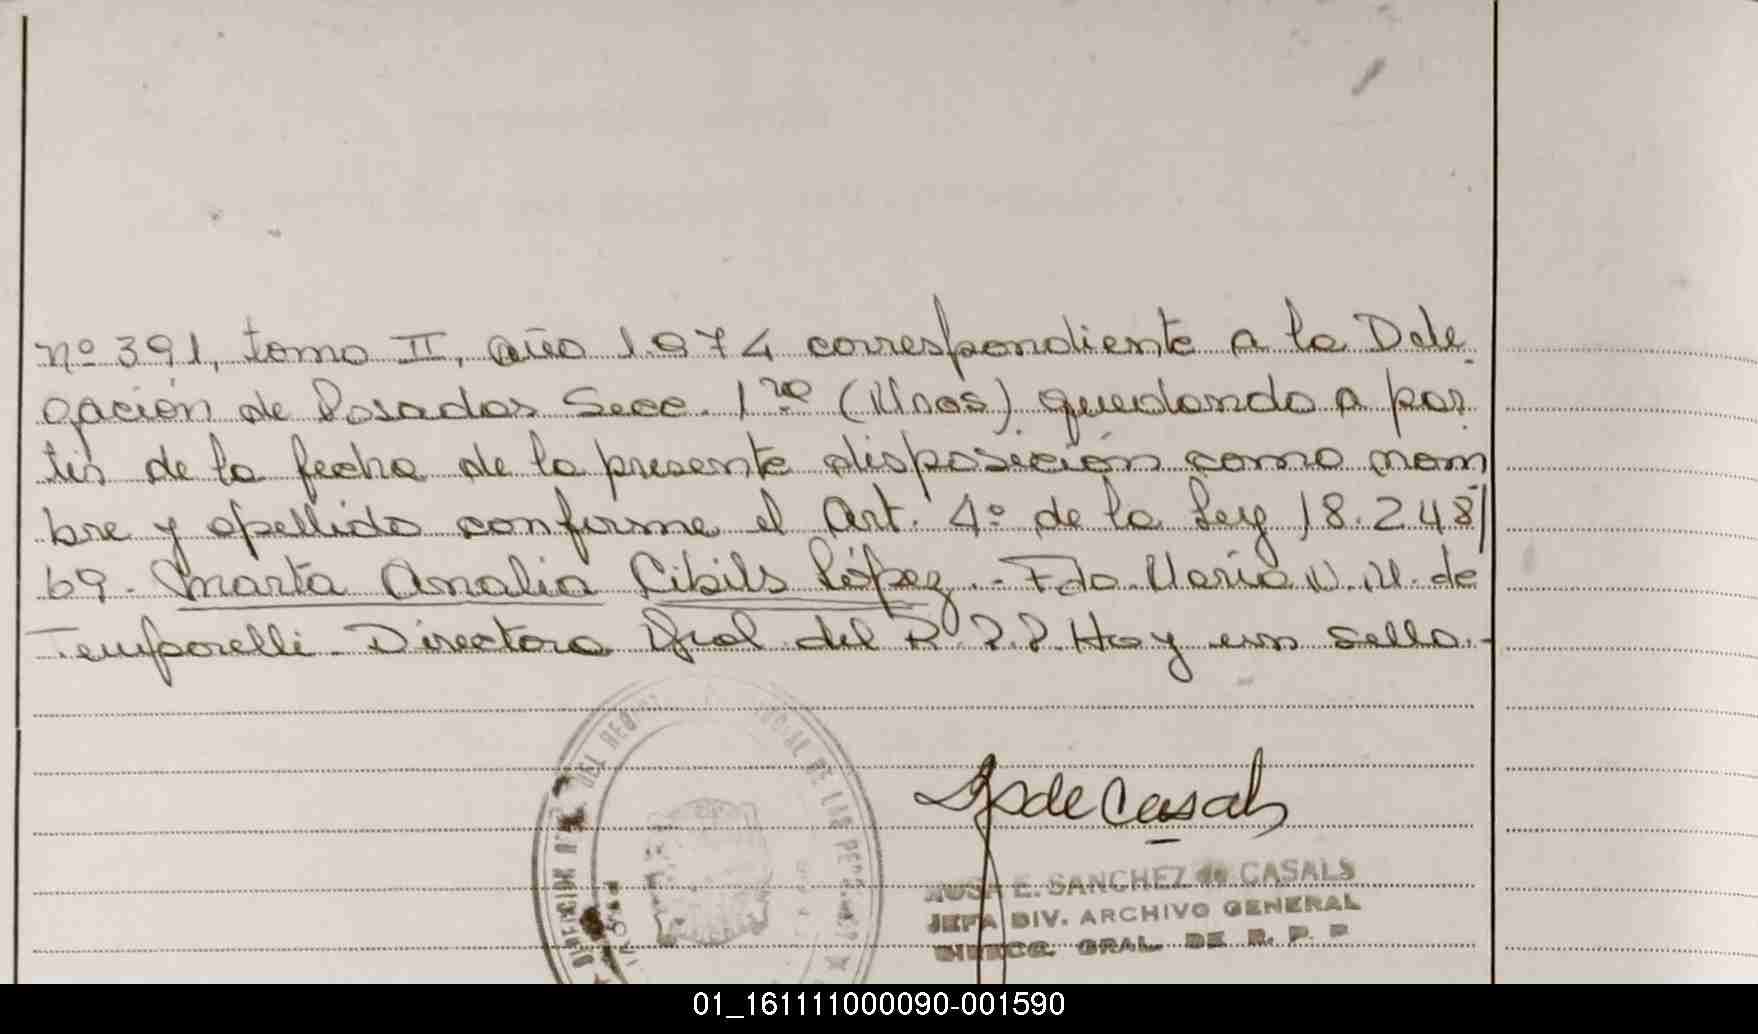 nº 391, tomo II, año 1.974 correspondiente a la Dele
gación de Posadas Secc. 1ra (Mnes) quedando a par
tir de la fecha de la presente disposición como nom
bre y apellido conforme el Art. 4º de la Ley 18.248/
69. Marta Analia Cibils López.- Fdo. María N. M. de
Temporelli - Directora Gral del R.P.P. Hay un sello.-
DEL DE LAS
S. de Casals
E. SANCHEZ de CASALS
JEFA DIV. ARCHIVO GENERAL
DIRECC. GRAL. DE R. P. P
01_161111000090-001590